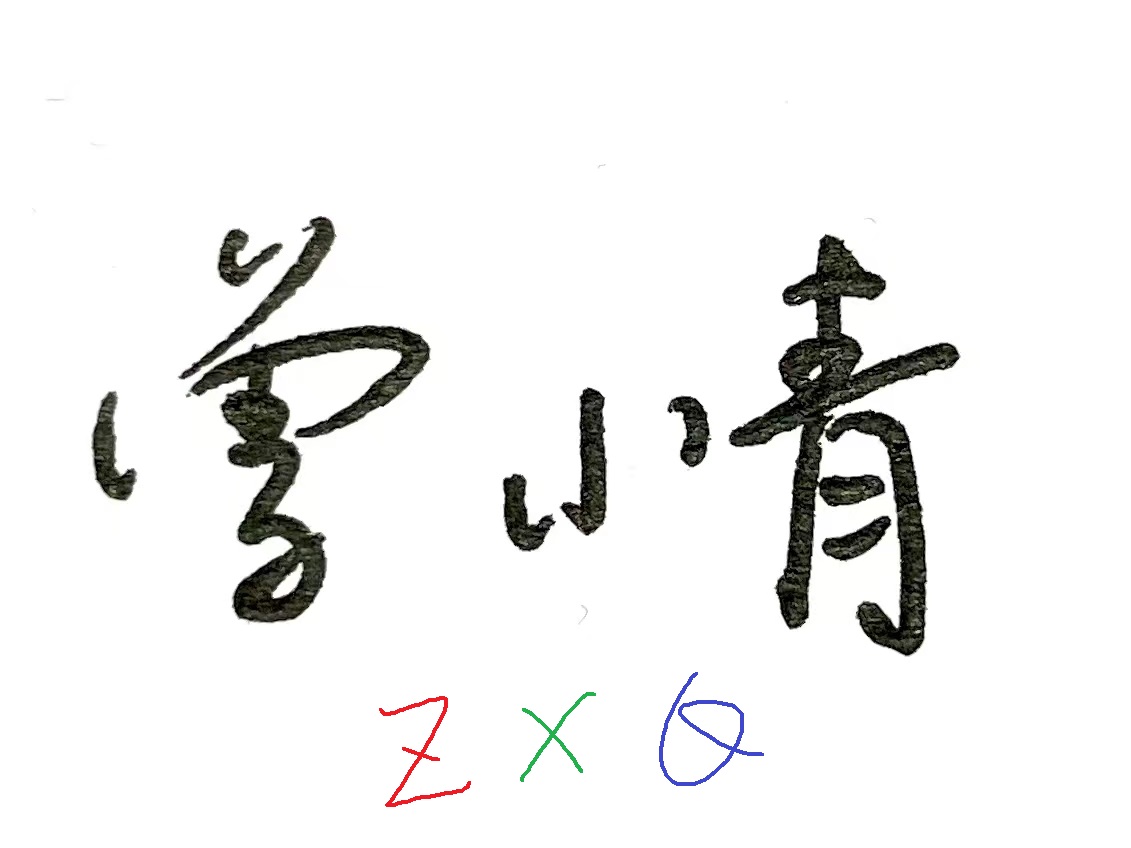 曾小青
Z X Q